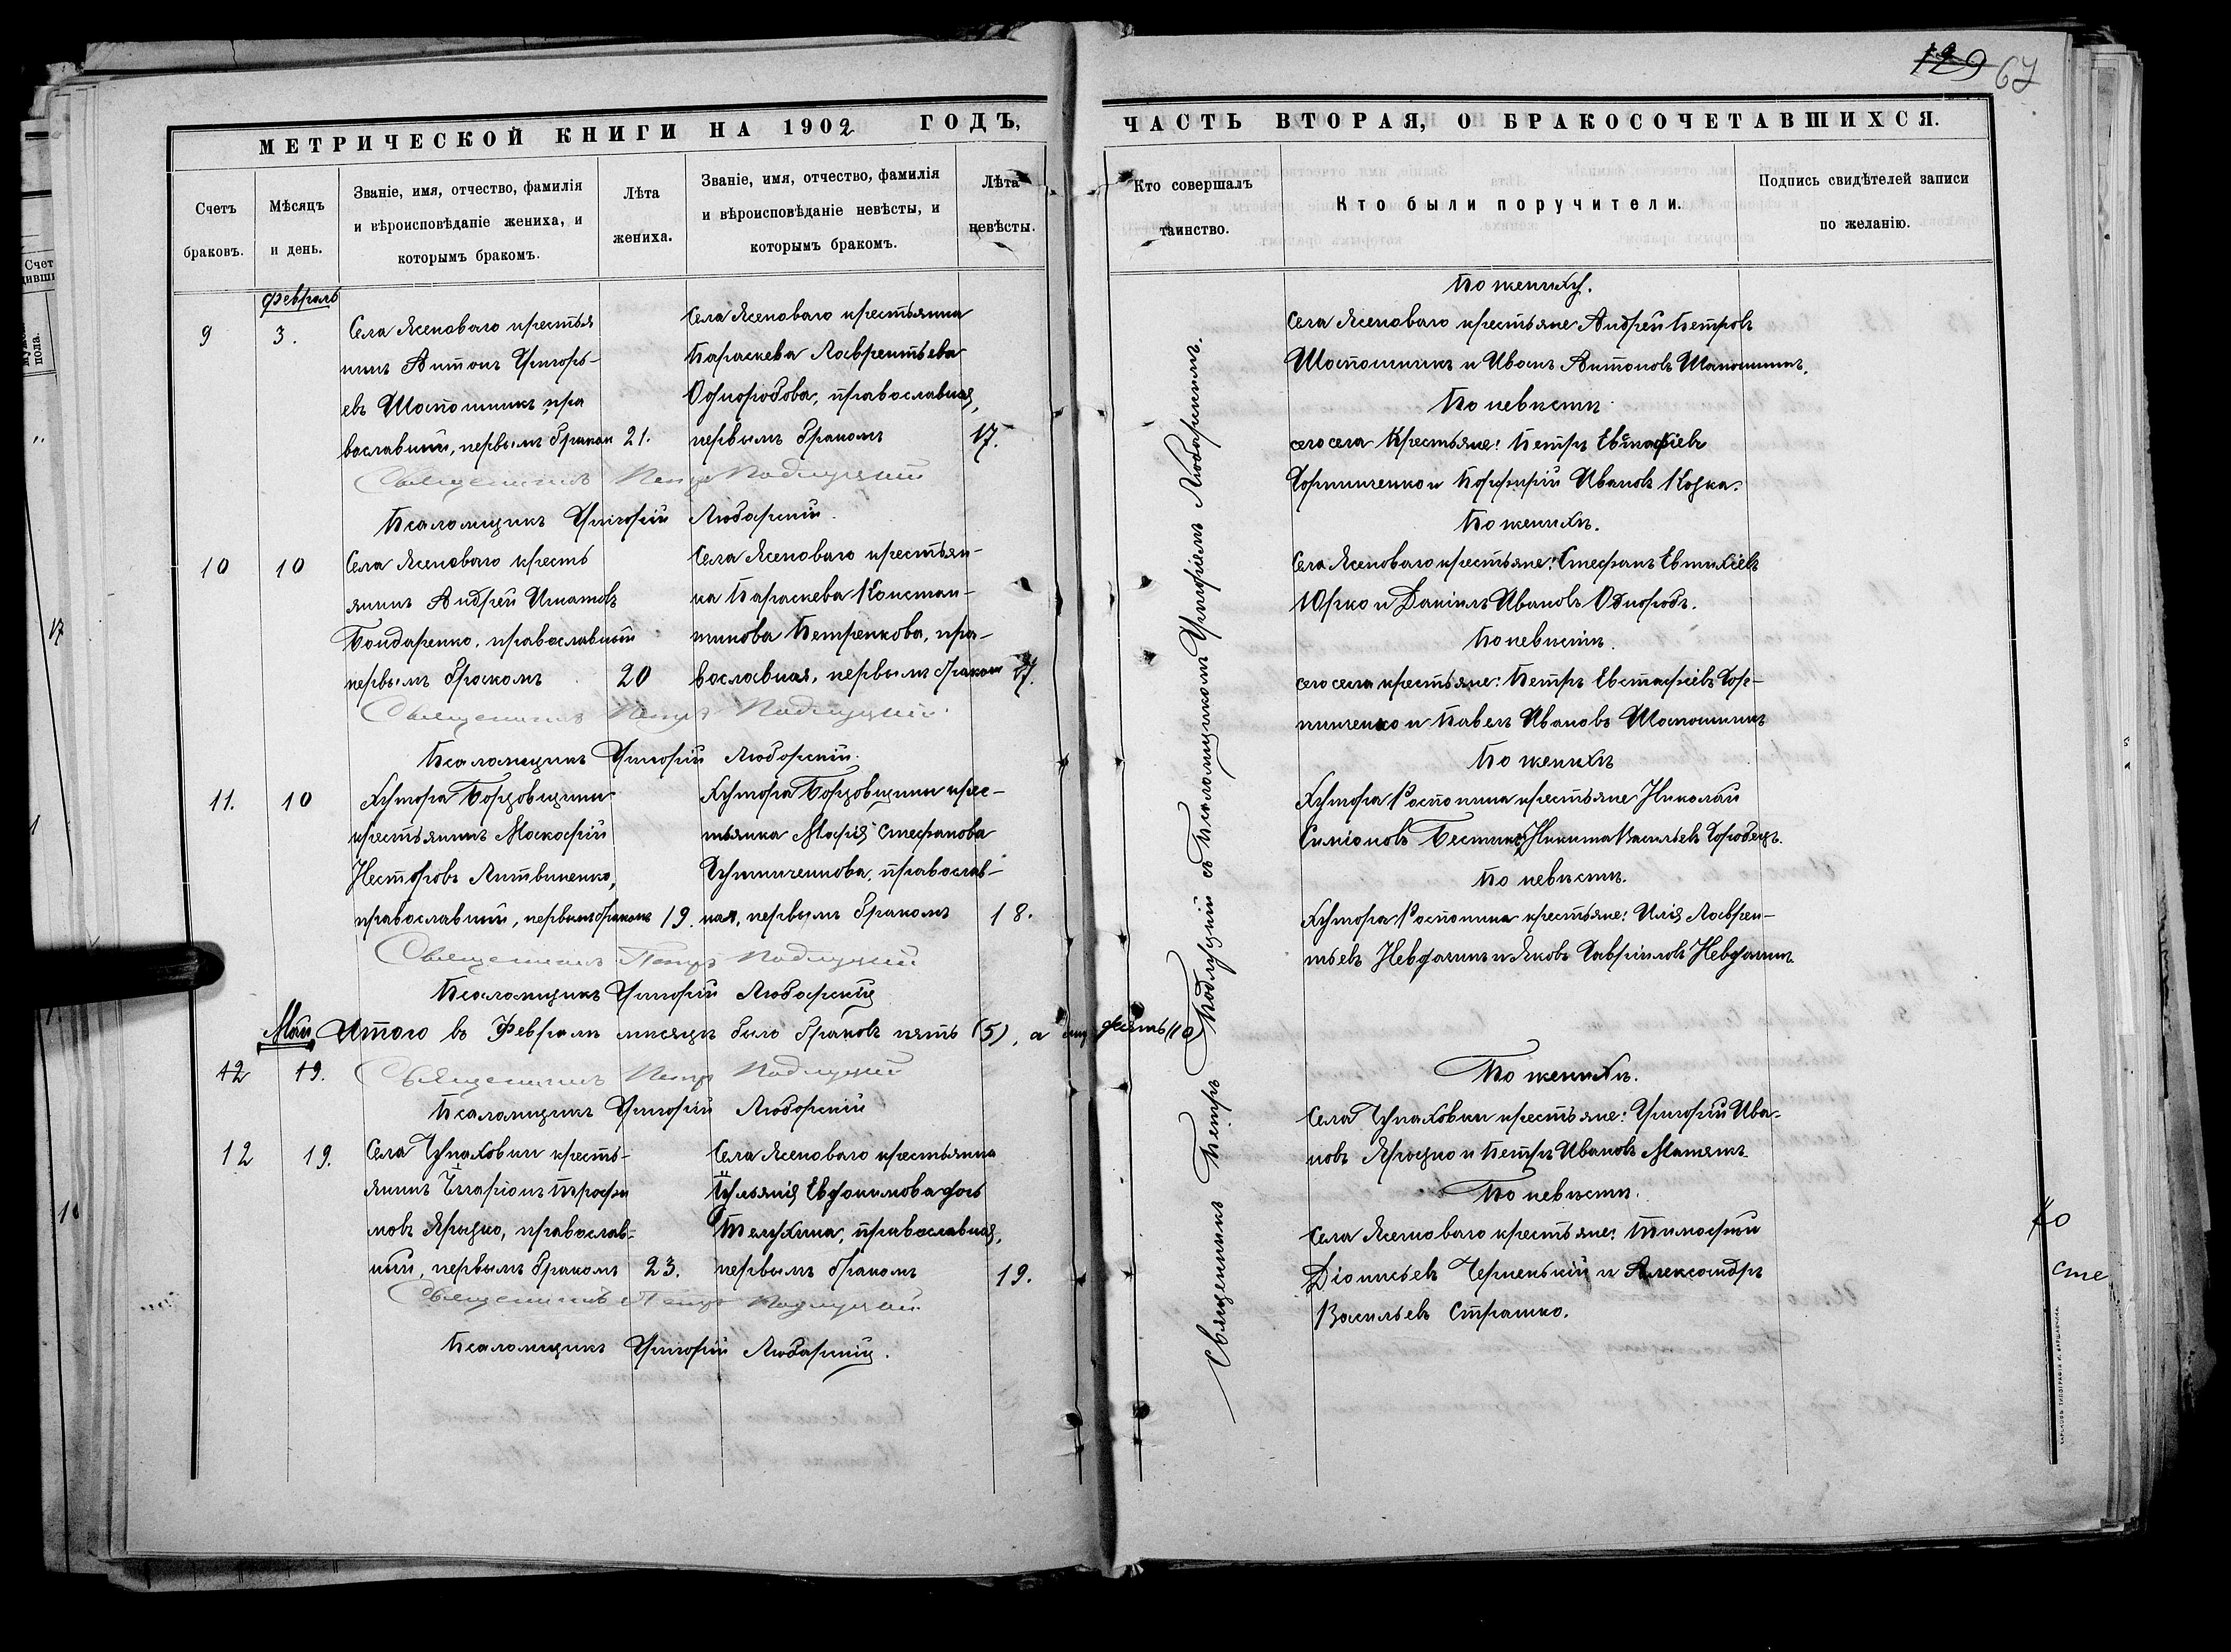 129 67
МЕТРИЧЕСКОЙ КНИГИ НА 1902 ГОДЪ,
Счетъ браковъ.
Мѣсяцъ и день.
Званіе, имя, отчество, фамилія
и вѣроисповѣданіе жениха, и
которымъ бракомъ.
Лѣта жениха.
Званіе, имя, отчество, фамилія
и вѣроисповѣданіе невѣсты, и
которымъ бракомъ.
Лѣта невѣсты.
февраль
9
3.
Села Ясеноваго крестья
нинъ Антонъ Григорь-
евъ Шапошникъ, пра
вославный, первымъ бракомъ
21.
Села Ясеноваго крестьянка
Параскева Лаврентьева
Однородова, православная,
первымъ бракомъ
17.
Священникъ Петръ Подлуцкий
Псаломщикъ Григорій Любарскій.
10
10
Села Ясеноваго кресть
янинъ Андрей Игнатовъ
Бондаренко, православный
первымъ бракомъ
20
Села Ясеноваго крестьян-
ка Параскева Констан-
тинова Петренкова, пра-
вославная, первымъ бракомъ
Священникъ Петръ Подлуцкий
Псаломщикъ Григорій Любарскій.
11.
10
Хутора Борзовщины
крестьянинъ
Несторовъ Литвиненко,
православный, первымъ бракомъ
19.
Хутора Борзовщины крес-
тьянка Марія Стефанова
православ-
ная, первымъ бракомъ
18.
Священникъ Петръ Подлуцкий
Псаломщикъ Григорій Любарскій
Май
Итого въ Февралѣ мѣсяцѣ было браковъ пять (5), а
12
19.
Священникъ Петръ Подлуцкий
Псаломщикъ Григорій Любарскій
12
19.
Села Чупаховки кресть-
янинъ Илларіонъ Трофи
мовъ Ярошко, православ-
ный, первымъ бракомъ
23.
Села Ясеноваго крестьянка
Іуліанія Евдокимова дочь
православная,
первымъ бракомъ
19.
Священникъ Петръ Подлуцкий
Псаломщикъ Григорій Любарскій.
ЧАСТЬ ВТОРАЯ, О БРАКОСОЧЕТАВШИХСЯ.
Кто совершалъ таинство.
Кто были поручители.
Подпись свидѣтелей записи
по желанію.
Священникъ Петръ Подлуцкій съ Псаломщикомъ Григоріемъ Любарскимъ.
По женихѣ.
Села Ясеноваго крестьяне Андрей Петровъ
Шапошникъ и Иванъ Антоновъ Шапошникъ.
По невѣстѣ
сего села Крестьяне: Петръ Евстафіевъ
Горпинченко и Порфирій Ивановъ Козка.
По женихѣ.
Села Ясеноваго крестьяне: Стефанъ Евтихіевъ
Юрко и Даніилъ Ивановъ Однородъ.
По невѣстѣ.
сего села крестьяне: Петръ Евстафіевъ Гор-
пинченко и Павелъ Ивановъ Шапошникъ
По женихѣ
Хутора крестьяне Николай
Симіоновъ Никита Васильевъ Городецъ.
По невѣстѣ.
Хутора крестьяне: Илія Лаврен-
тьевъ и Яковъ Гавріиловъ
По женихѣ.
Села Чупаховки крестьяне: Григорій Ива-
новъ Ярошко и Петръ Ивановъ
По невѣстѣ.
Села Ясеноваго крестьяне: Тимофей
Діонисьевъ Черненькій и Александръ
Васильевъ Страшко.